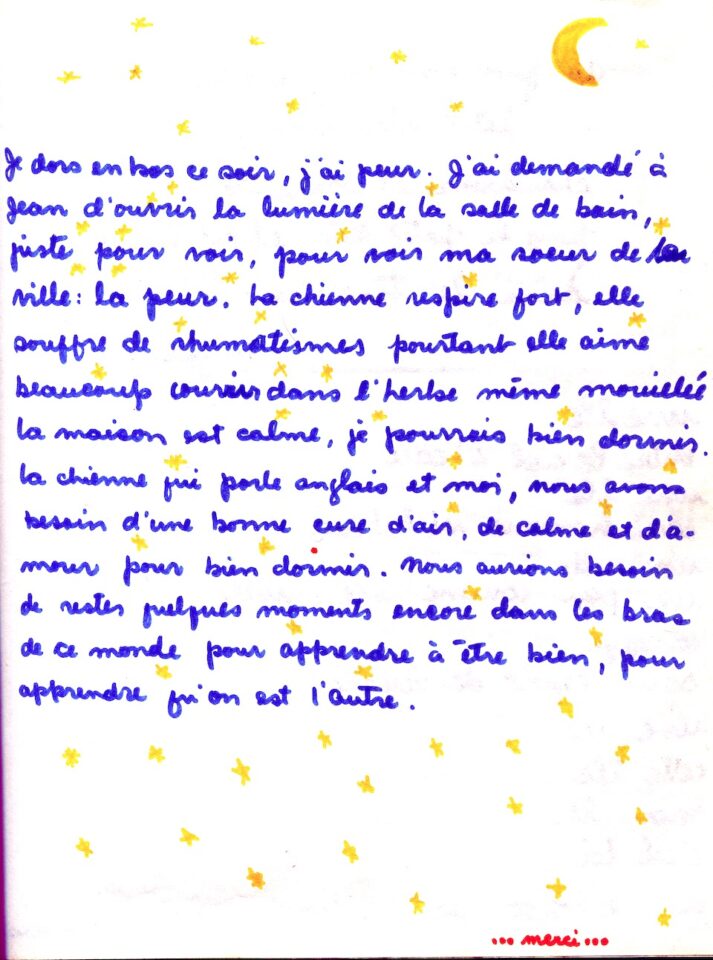 Je dors en bas ce soir, j'ai peur. J'ai demandé à
Jean d'ouvrir la lumière de la salle de bain,
juste pour voir, pour voir ma soeur de la
ville : la peur. La chienne respire fort, elle
souffre de rhumatismes pourtant elle aime
beaucoup courir dans l'herbe même mouillée
la maison est calme, je pourrais bien dormir.
La chienne qui parle anglais et moi, nous avons
besoin d'une bonne cure d'air, de calme et d'a-
mour pour bien dormir. Nous aurions besoin
de rester quelques moments encore dans les bras
de ce monde pour apprendre à être bien, pour
apprendre qu'on est l'autre.
... merci ...